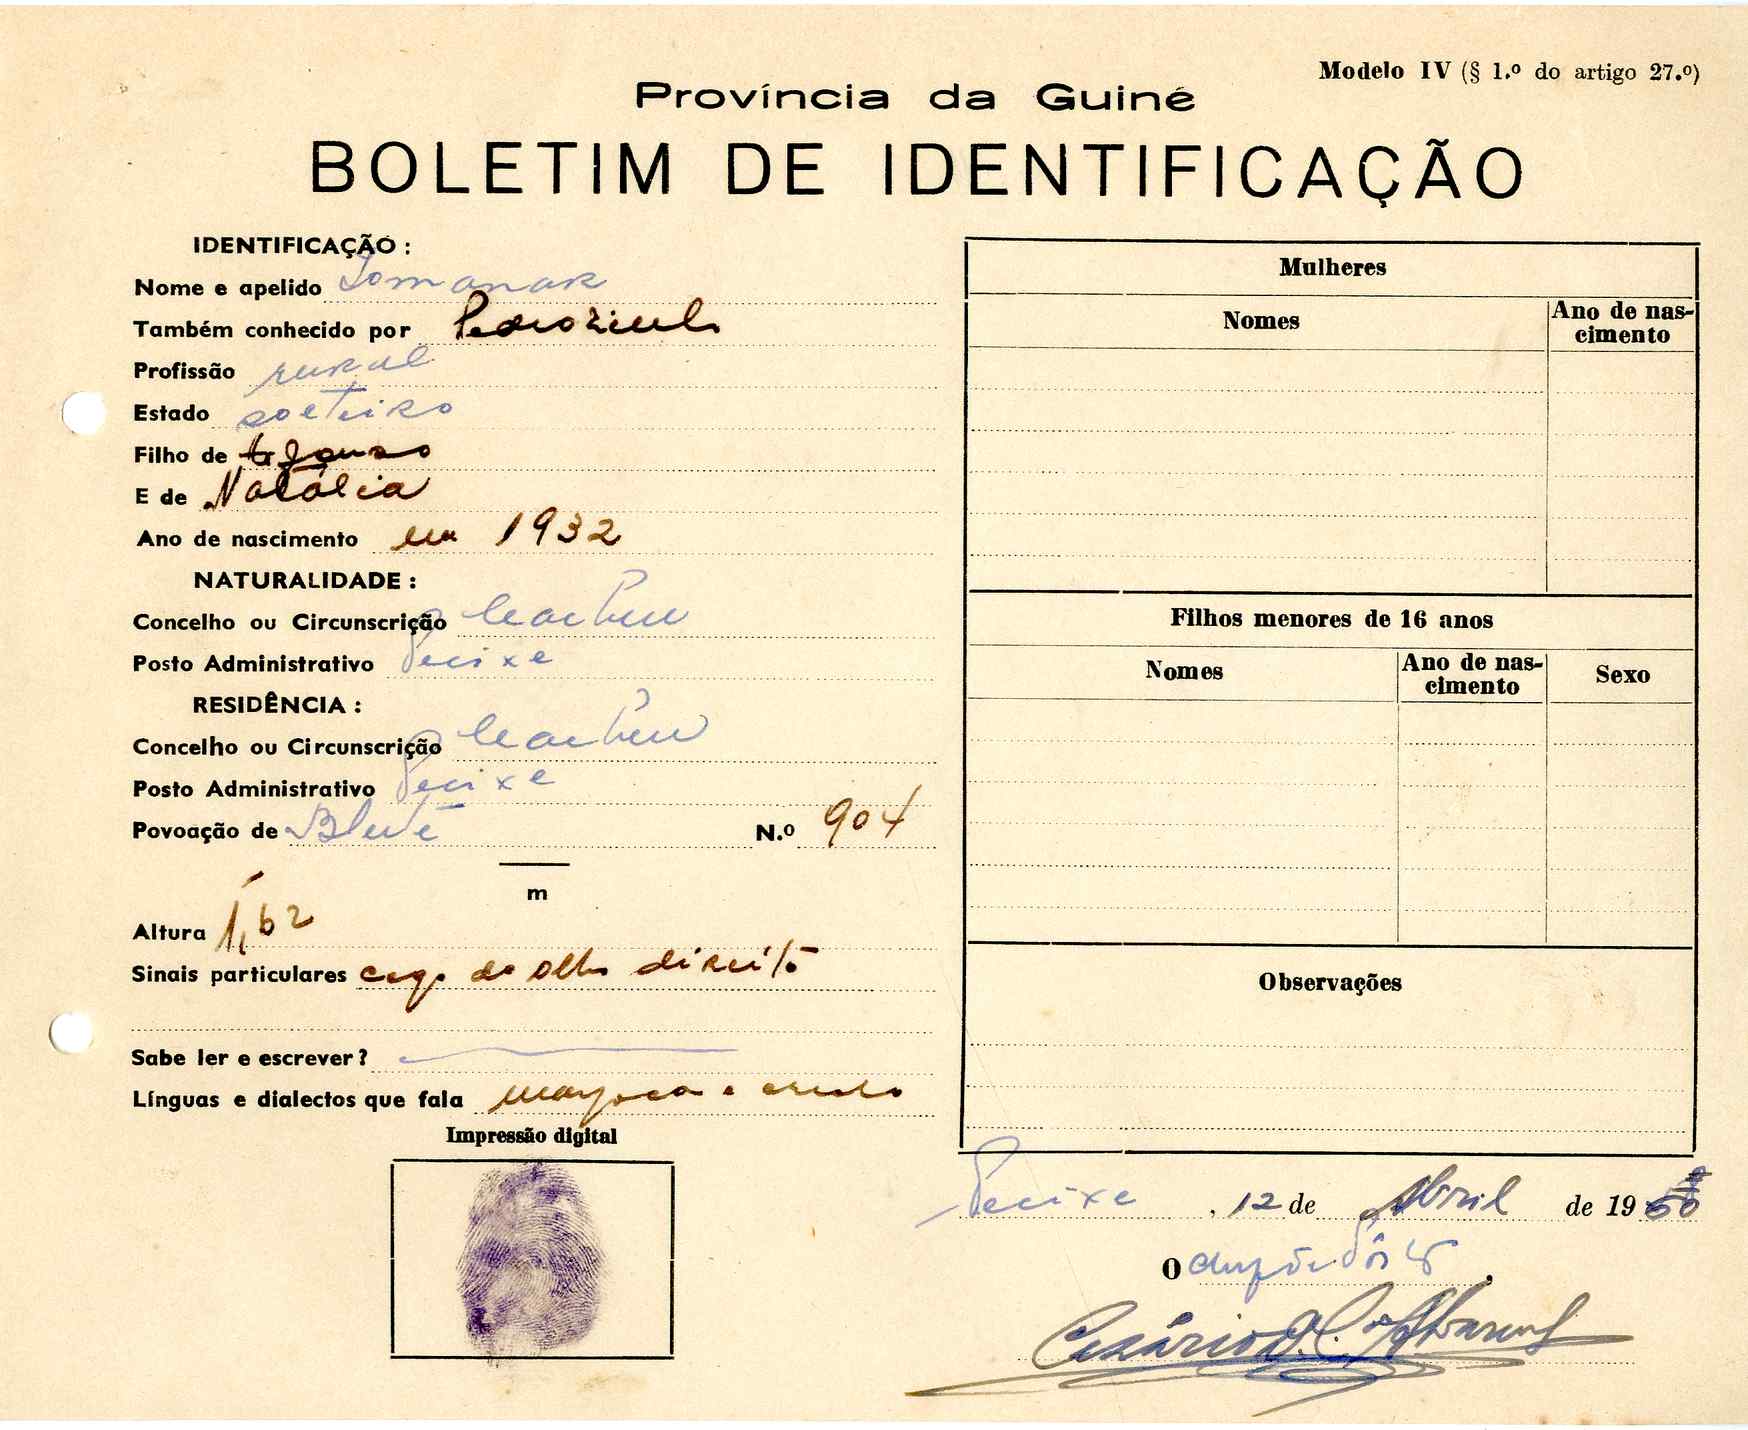 Modelo IV (§ 1.º do artigo 27.º)
Província da Guiné
BOLETIM DE IDENTIFICAÇÃO
IDENTIFICAÇÃO :
Nome e apelido
Também conhecido por
Profissão rural
Estado solteiro
Filho de Afonso
E de Natália
Ano de nascimento em 1932
NATURALIDADE :
Concelho ou Circunscrição
Posto Administrativo Pecixe
RESIDÊNCIA :
Concelho ou Circunscrição
Posto Administrativo Pecixe
Povoação de N.º 904
m
Altura 1,62
Sinais particulares cego do olho direito
Sabe ler e escrever?
Línguas e dialectos que fala manjaca e crioulo
Impressão digital
Mulheres
Nomes
Ano de nas-
cimento
Filhos menores de 16 anos
Nomes
Ano de nas-
cimento
Sexo
Observações
Pecixe, 12 de Abril de 19
O